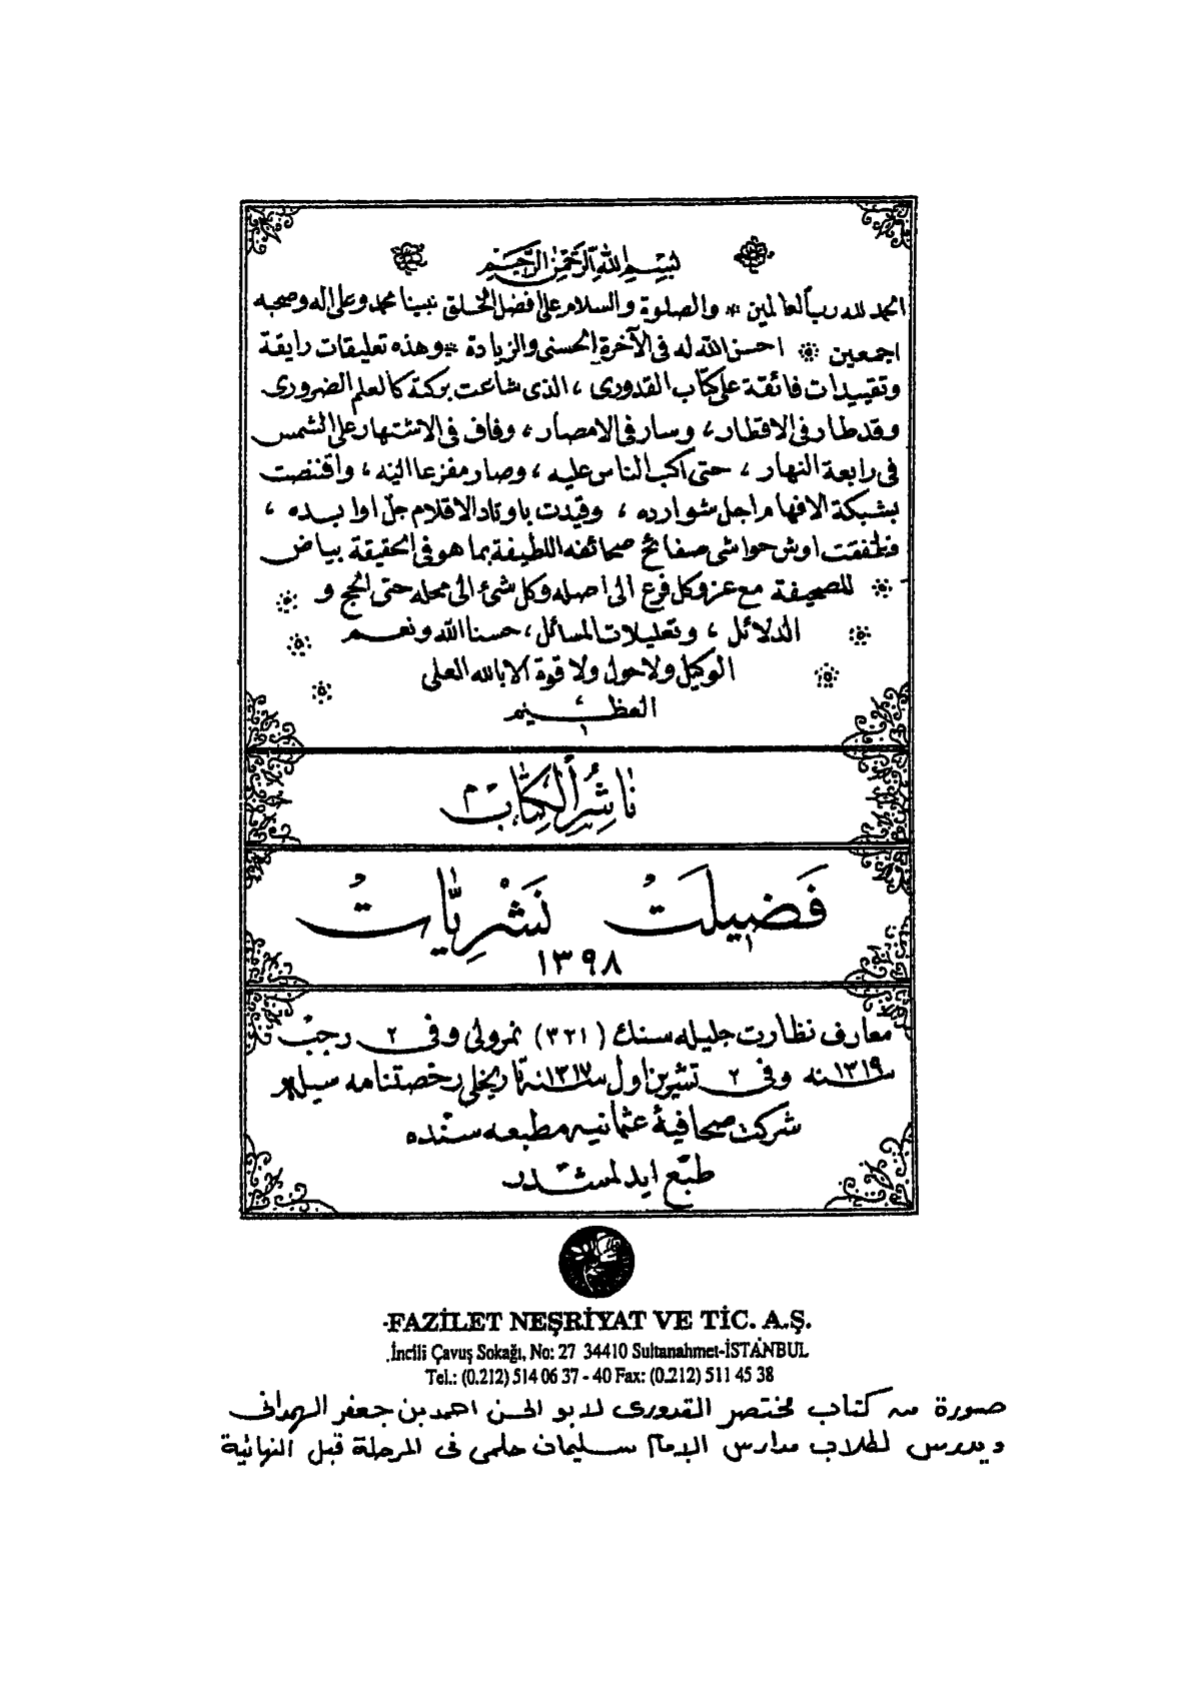 بسم الله الرحمن الرحيم
الحمد لله رب العالمين * والصلوة والسلام على افضل الخلق نبينا محمد وعلى اله وصحبه
اجمعين * احسن الله له فى الآخرة الحسنى والزيادة * وهذه تعليقات رايقة
وتقييدات فائقة على كتاب القدورى ، الذى شاعت بركته كالعلم الضرورى
وقد طار فى الاقطار ، وسار فى الامصار ، وفاق فى الاشتهار على الشمس
فى رابعة النهار ، حتى اكب الناس عليه ، وصار مفزعا اليه ، واقتنصت
بشبكة الافهام اجل شوارده ، وقيدت باوتاد الاقلام جل اوابده ،
حواشى صفائح صحائفه اللطيفة بما هو فى الحقيقة بياض
للصحيفة مع عزو كل فرع الى اصله وكل شئ الى محله حتى الحجج و
الدلائل ، وتعليلات المسائل ، حسبنا الله ونعم
الوكيل ولا حول ولا قوة الا بالله العلى
العظيم
ناشر الكتاب
فضيلت نشريات
١٣٩٨
معارف نظارت جليله سنك (٣٢١) نمرولى وفى ٢ رجب
سنه ١٣١٩ وفى ٢ تشرين اول سنه ١٣١٧ تاريخلى رخصتنامه سيله
شركت صحافيۀ عثمانيه مطبعه سنده
طبع ايدلمشدر
FAZİLET NEŞRİYAT VE TİC. A.Ş.
İncili Çavuş Sokağı, No: 27 34410 Sultanahmet-İSTANBUL
Tel.: (0.212) 514 06 37 - 40 Fax: (0.212) 511 45 38
صورة من كتاب مختصر القدورى لابو الحسن احمد بن جعفر الهمدانى
ويدرس لطلاب مدارس الإمام سليمان حلمى فى المرحلة قبل النهائية